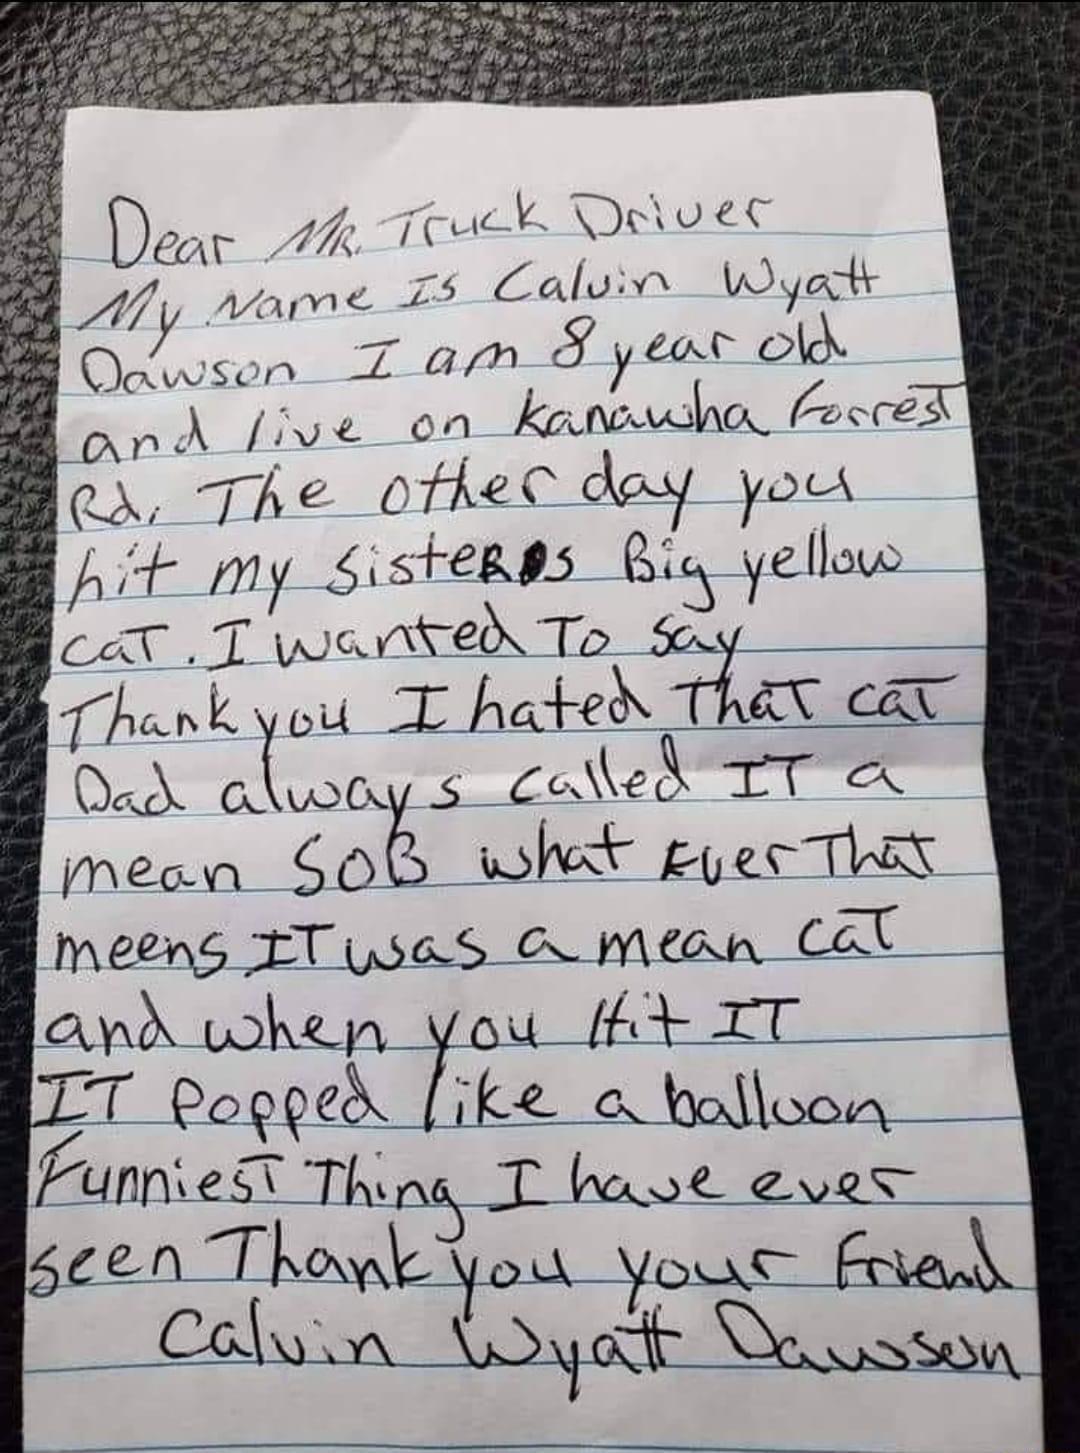 Dear Mr. Truck Driver
My Name Is Calvin Wyatt
Dawson I am 8 year old
and live on Kanawha Forrest
Rd. The other day you
hit my sisters Big yellow
cat. I wanted To say
Thank you I hated that cat
Dad always called IT a
mean SOB what Ever That
meens IT was a mean cat
and when you Hit IT
IT Popped like a balloon
Funniest Thing I have ever
seen Thank you your Friend
Calvin Wyatt Dawson